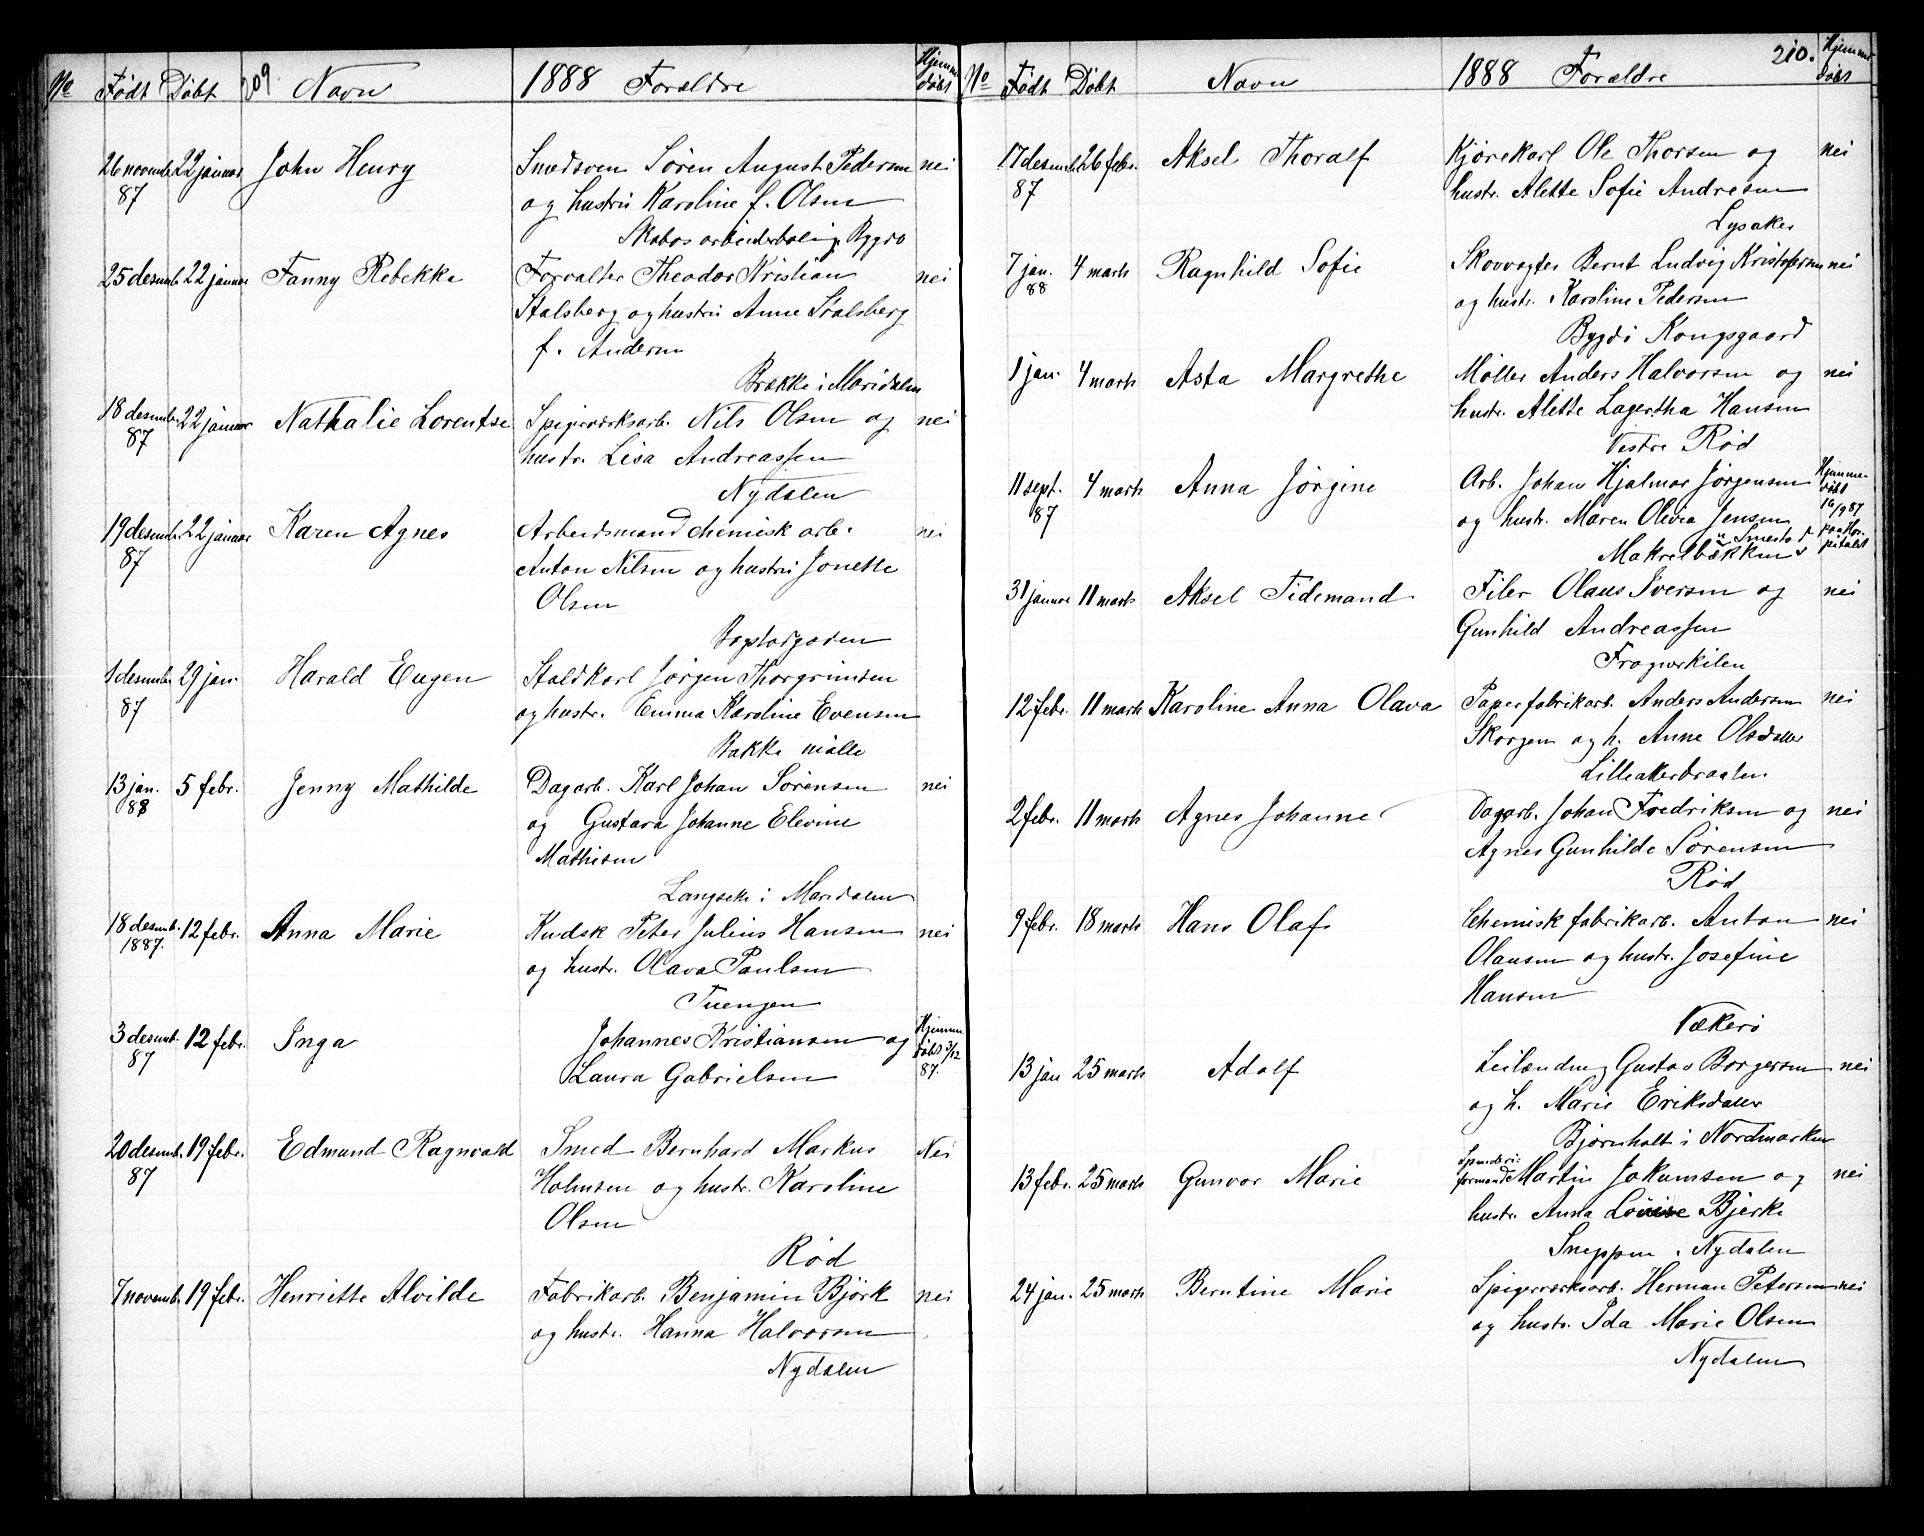 No Født Døbt 209 Navn 1888 Forældre Hjemmedøbt
26 novemb. 87 22 januar John Henry Smedsven Søren August Pedersen nei
og hustru Karoline f. Olsen
Skabos arbeiderbolig Bygdø
25 desemb. 22 januar Fanny Rebekka Forvalter Theodor Kristian nei
Stalsberg og hustru Anne Stalsberg
f. Andersen
Brække i Maridalen
18 desemb. 87 22 januar Nathalie Lorentse Spigerverksarb. Nils Olsen og nei
hustr. Lisa Andreassen
Nydalen
19 desemb. 87 22 januar Karen Agnes Arbeidsmand chemisk arb. nei
Anton Nilsen og hustru Jonette
Olsen
1 desemb. 87 29 jan. Harald Eugen Staldkarl Jørgen Thorgrimsen
og hustr. Emma Karoline Evensen
Bakke mølle
13 jan. 88 5 febr. Jenny Mathilde Dagarb. Karl Johan Sørensen nei
og Gustava Johanne Elevine
Mathisen
Langsete i Maridalen
18 desemb. 1887. 12 febr. Anna Marie Kudsk Peter Julius Hansen nei
og hustr. Olava Paulsen
Tuengen
3 desemb. 87 12 febr. Inga Johannes Kristiansen og Hjemmedøbt 3/12 87.
Laura Gabrielsen
20 desemb. 87 19 febr. Edmund Ragnvald Smed Bernhard Markus Nei
Holmsen og hustr. Karoline
Olsen
Rød
7 novemb. 19 febr. Henriette Alvilde Fabrikarb. Benjamin Björk nei
og hustr. Hanna Halvorsen
Nydalen
No Født Døbt Navn 1888 Forældre 210. Hjemmedøbt
17 desemb. 87 26 febr. Aksel Thoralf Kjørekarl Ole Thorsen og nei
hustr. Alette Sofie Andresen
Lysaker
7 jan. 88 4 marts Ragnhild Sofie Skovvogter Bernt Ludvig Kristofersen nei
og hustr. Karoline Pedersen
Bygdø Kongsgaard
1 jan. 4 marts Asta Margrethe Møller Anders Halvorsen og nei
hustr. Alette Lagertha Hansen
Vestre Rød
11 sept. 87 4 marts Anna Jørgine Arb. Johan Hjalmar Jørgensen Hjemmedøbt 16/9 87 paa Hospitalet
og hustr. Maren Olivia Jensen
Makrelbækken u. Smestad
31 januar 11 marts Aksel Tidemand Filer Olaus Iversen og nei
Gunhild Andreassen
Frognerkilen
12 febr. 11 marts Karoline Anna Olava Papirfabrikarb. Anders Andersen nei
Skorgen og h. Anne Olsdatter
Lilleakerbraaten
2 febr. 11 marts Agnes Johanne Dagarb. Johan Fredriksen og nei
Agnes Gunhilde Sørensen
Rød
9 febr. 18 marts Hans Olaf Chemisk fabrikarb. Anton nei
Olausen og hustr. Josefine
Hansen
Vækerø
13 jan 25 marts Adolf Leilænding Gustav Borgersen nei
og h. Marie Eriksdatter
Bjørnholt i Nordmarken
13 febr. 25 marts Gunvor Marie Spinderiformand Martin Jokumsen og nei
hustr. Anna Lovise Bjerke
Sneppen i Nydalen
24 jan. 25 marts Berntine Marie Spigerverksarb. Herman Petersen nei
og hustr. Ida Marie Olsen
Nydalen